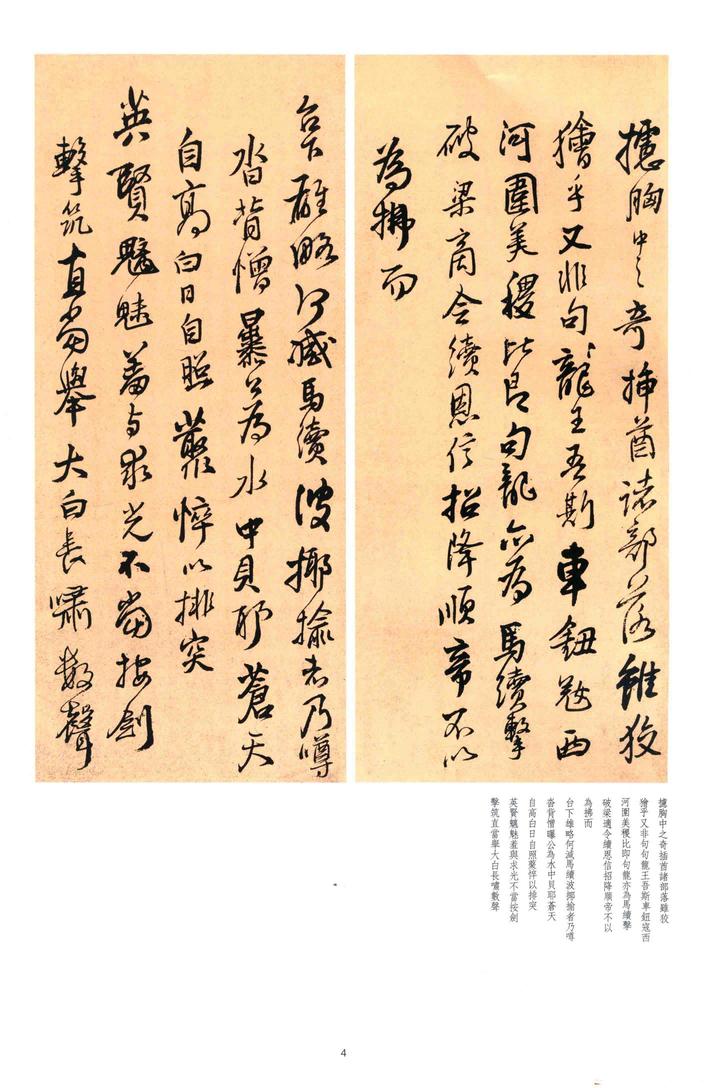 攄胸中之奇插酋諸部落雖狡
獪乎又非句龍王吾斯車鈕寇西
河圍美稷比即句龍亦為馬續擊
破梁商令續恩信招降順帝不以
為拂而
台下雄略何減馬續波揶揄者乃噂
沓背憎暴公為水中貝耶蒼天
自高白日自照叢悴以排突
英賢魑魅羞与求光不當按劍
擊筑直當舉大白長嘯數聲
攄胸中之奇插酋諸部落雖狡
獪乎又非句句龍王吾斯車鈕寇西
河圍美稷比即句龍亦為馬續擊
破梁適令續恩信招降順帝不以
為拂而
台下雄略何減馬續波揶揄者乃噂
沓背憎曝公為水中貝耶蒼天
自高白日自照藂悴以排突
英賢魑魅羞與求光不當按劍
擊筑直當舉大白長嘯數聲
4